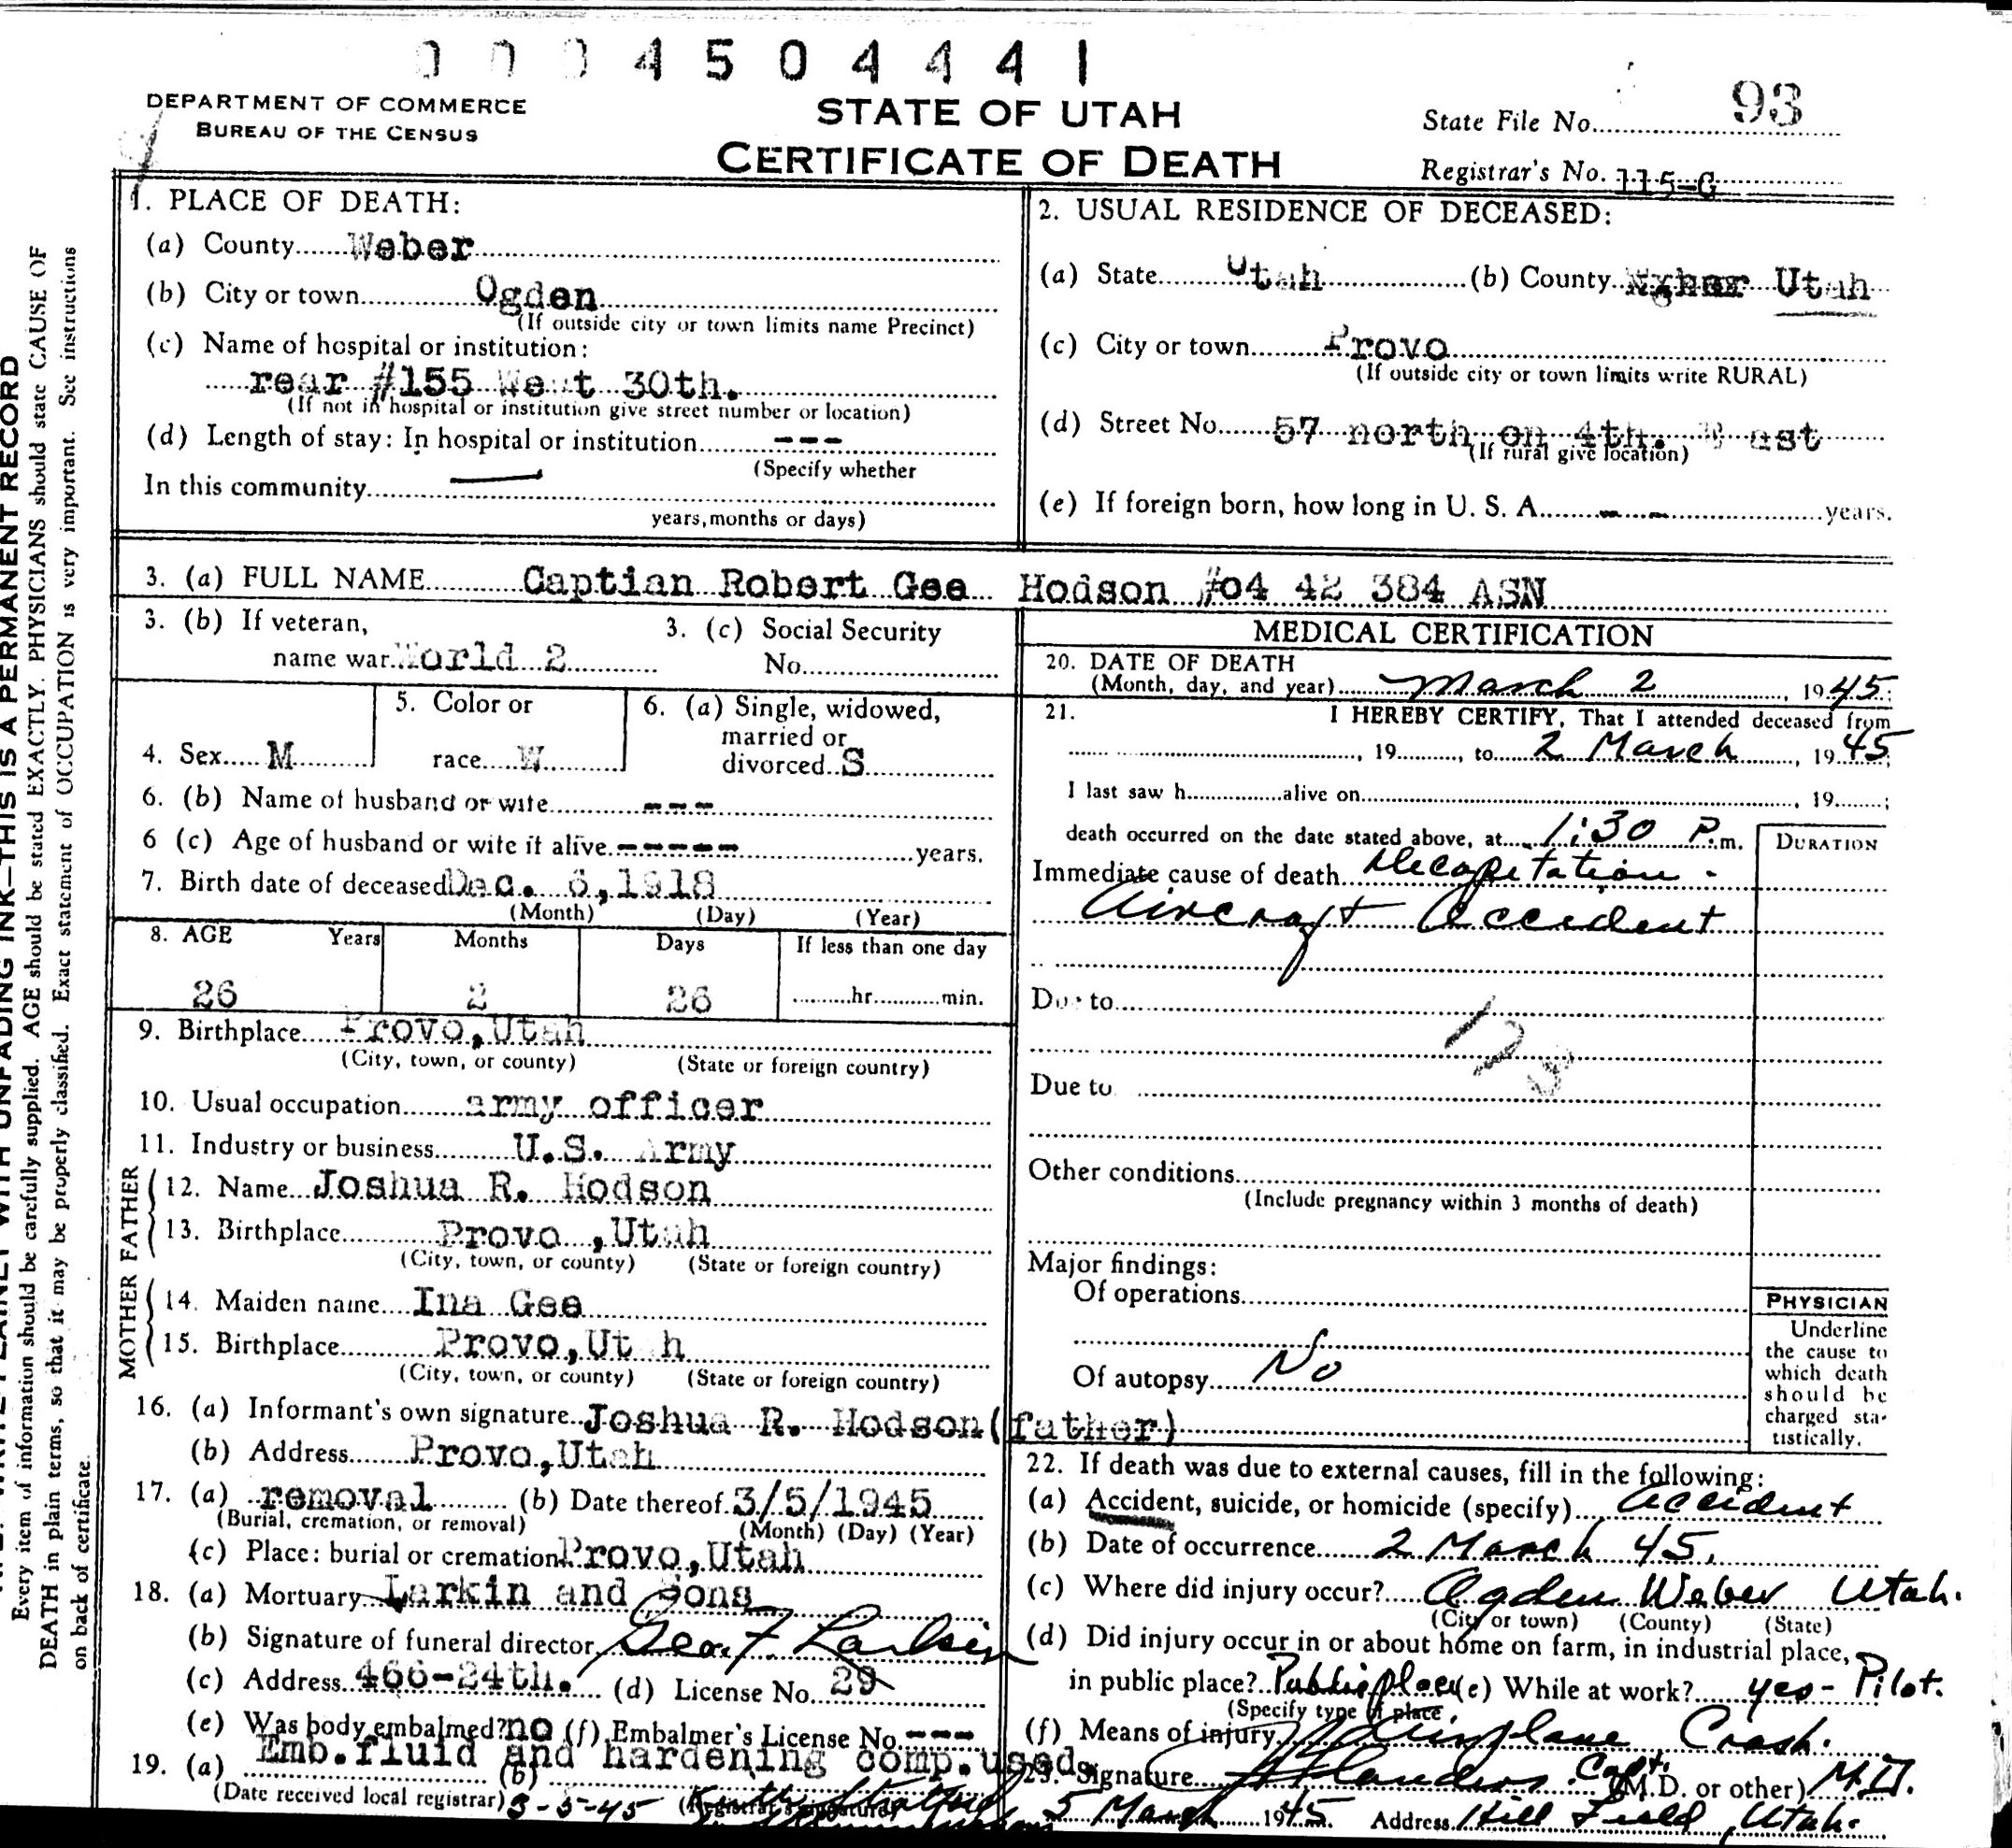 0004504441
DEPARTMENT OF COMMERCE
BUREAU OF THE CENSUS
STATE OF UTAH
CERTIFICATE OF DEATH
State File No. 93
Registrar's No. 115-G
1. PLACE OF DEATH:
(a) County Weber
(b) City or town Ogden
(If outside city or town limits name Precinct)
(c) Name of hospital or institution:
rear #155 West 30th.
(If not in hospital or institution give street number or location)
(d) Length of stay: In hospital or institution ---
(Specify whether
In this community —
years, months or days)
2. USUAL RESIDENCE OF DECEASED:
(a) State Utah (b) County Utah
(c) City or town Provo
(If outside city or town limits write RURAL)
(d) Street No. 57 north on 4th.
(If rural give location)
(e) If foreign born, how long in U. S. A. -- years.
3. (a) FULL NAME Captian Robert Gee Hodson #04 42 384 ASN
3. (b) If veteran,
name war World 2
3. (c) Social Security
No.
4. Sex M
5. Color or
race W
6. (a) Single, widowed,
married or
divorced S
6. (b) Name of husband or wife ---
6 (c) Age of husband or wife if alive ----- years.
7. Birth date of deceased Dec. 6, 1918
(Month) (Day) (Year)
8. AGE Years Months Days If less than one day
26 2 26 hr. min.
9. Birthplace Provo, Utah
(City, town, or county) (State or foreign country)
10. Usual occupation army officer
11. Industry or business U.S. Army
FATHER
12. Name Joshua R. Hodson
13. Birthplace Provo ,Utah
(City, town, or county) (State or foreign country)
MOTHER
14. Maiden name Ina Gee
15. Birthplace Provo, Ut h
(City, town, or county) (State or foreign country)
16. (a) Informant's own signature Joshua R. Hodson (father)
(b) Address Provo, Utah
17. (a) removal (b) Date thereof 3/5/1945
(Burial, cremation, or removal) (Month) (Day) (Year)
(c) Place: burial or cremation Provo, Utah
18. (a) Mortuary Larkin and Sons
(b) Signature of funeral director Geo. F. Larkin
(c) Address 466-24th. (d) License No. 29
(e) Was body embalmed? no (f) Embalmer's License No. ---
Emb. fluid and hardening comp. used.
19. (a) (b)
(Date received local registrar) 3-5-45 (Registrar's signature)
MEDICAL CERTIFICATION
20. DATE OF DEATH
(Month, day, and year) March 2, 1945
21. I HEREBY CERTIFY, That I attended deceased from
, 19 , to 2 March, 1945
I last saw h alive on , 19 ;
death occurred on the date stated above, at 1:30 P.m.
DURATION
Immediate cause of death Decapitation -
Aircraft Accident
Due to
173
Due to
Other conditions
(Include pregnancy within 3 months of death)
Major findings:
Of operations
Of autopsy No
PHYSICIAN
Underline
the cause to
which death
should be
charged sta-
tistically.
22. If death was due to external causes, fill in the following:
(a) Accident, suicide, or homicide (specify) accident
(b) Date of occurrence 2 March 45.
(c) Where did injury occur? Ogden Weber Utah.
(City or town) (County) (State)
(d) Did injury occur in or about home on farm, in industrial place,
in public place? Public place (e) While at work? yes - Pilot.
(Specify type of place)
(f) Means of injury Airplane Crash.
23. Signature Capt. (M.D. or other) M.D.
5 March 1945. Address Hill Field, Utah.
THIS IS A PERMANENT RECORD
Every item of information should be carefully supplied. AGE should be stated EXACTLY. PHYSICIANS should state CAUSE OF
DEATH in plain terms, so that it may be properly classified. Exact statement of OCCUPATION is very important. See instructions
on back of certificate.